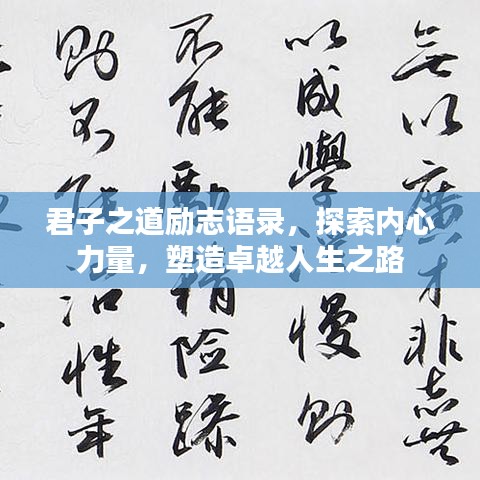 君子之道励志语录，探索内心
力量，塑造卓越人生之路
無以廣才非志無
以成學慢则
不能勵精險躁
则不能冶性年